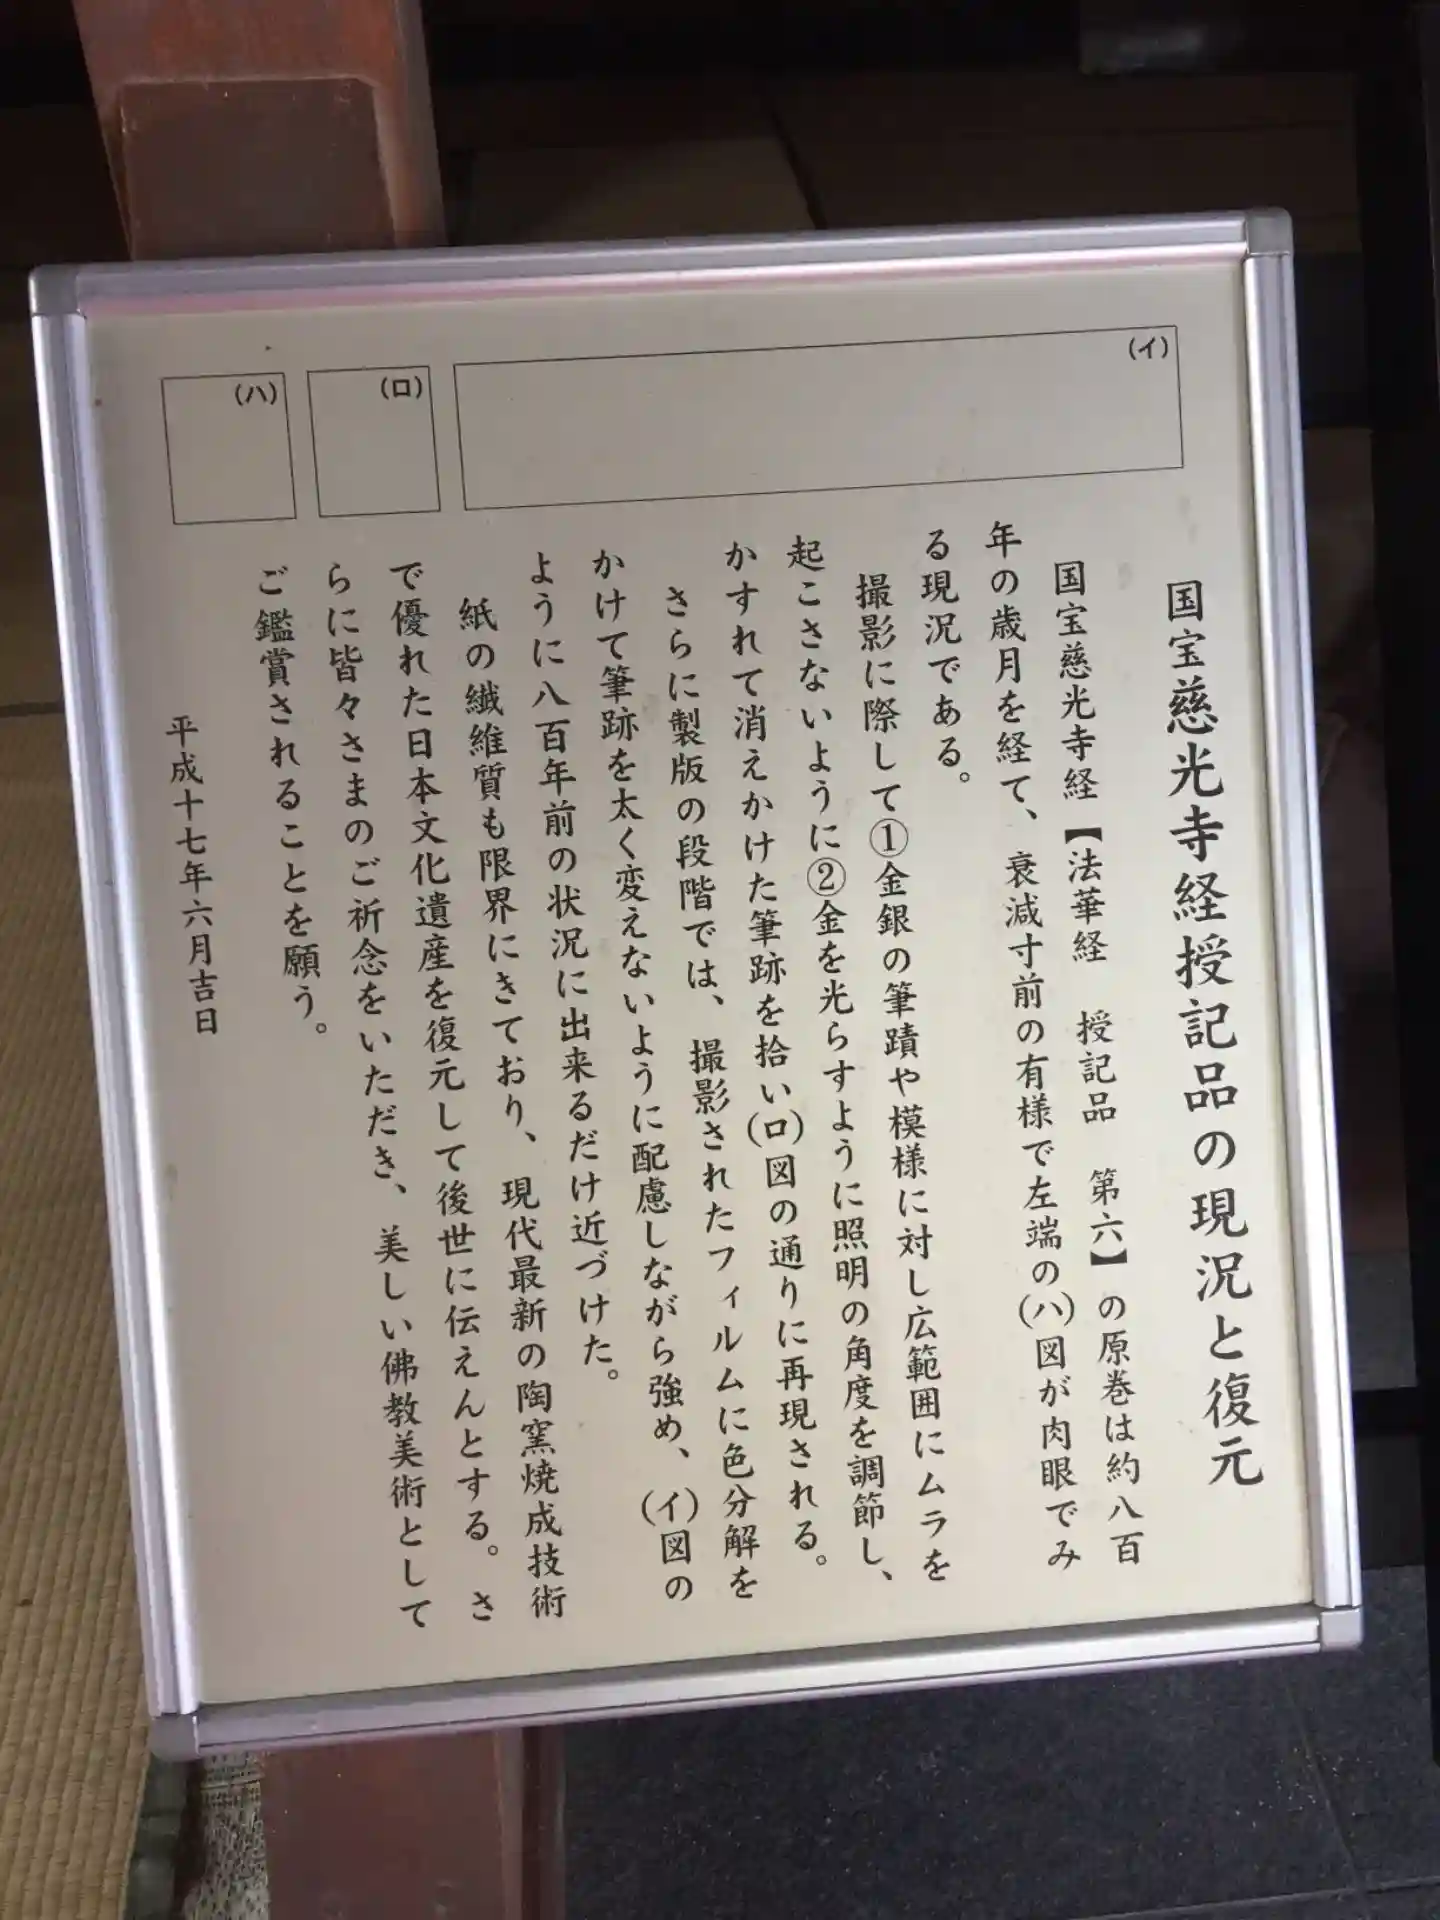 国宝慈光寺経授記品の現況と復元
国宝慈光寺経【法華経　授記品　第六】の原巻は約八百
年の歳月を経て、衰滅寸前の有様で左端の(ハ)図が肉眼でみ
る現況である。
撮影に際して①金銀の筆蹟や模様に対し広範囲にムラを
起こさないように②金を光らすように照明の角度を調節し、
かすれて消えかけた筆跡を拾い(ロ)図の通りに再現される。
さらに製版の段階では、撮影されたフィルムに色分解を
かけて筆跡を太く変えないように配慮しながら強め、(イ)図の
ように八百年前の状況に出来るだけ近づけた。
紙の繊維質も限界にきており、現代最新の陶窯焼成技術
で優れた日本文化遺産を復元して後世に伝えんとする。さ
らに皆々さまのご祈念をいただき、美しい佛教美術として
ご鑑賞されることを願う。
平成十七年六月吉日
(イ)
(ロ)
(ハ)